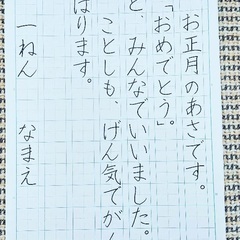 お正月のあさです。
「おめでとう」
と、みんなでいいました。
ことしも、げん気でがん
ばります。
一ねん なまえ